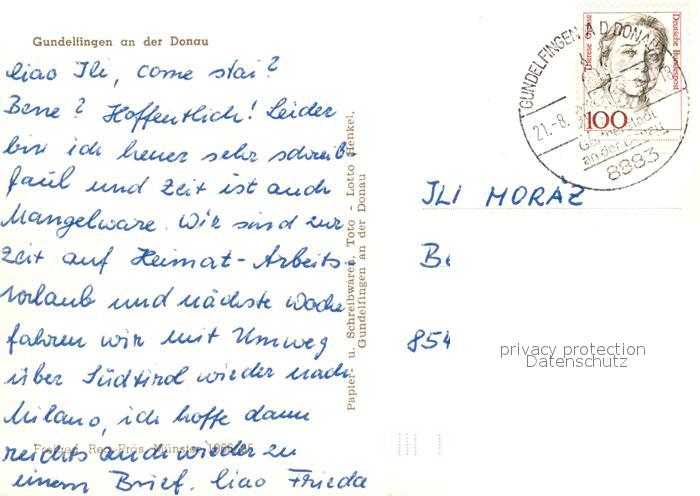 Gundelfingen an der Donau
Ciao Ili, come stai?
Bene? Hoffentlich! Leider
bin ich heuer sehr schreib-
faul und Zeit ist auch
Mangelware. Wir sind zur
Zeit auf Heimat-Arbeits-
urlaub und nächste Woche
fahren wir mit Umweg
über Südtirol wieder nach
Milano, ich hoffe dann
reichts auch wieder zu
einem Brief. Ciao Frieda
Freigeg. Reg. Präs. Münster
Papier- u. Schreibwaren, Toto - Lotto Henkel,
Gundelfingen an der Donau
GUNDELFINGEN A D DONAU
21.-8.
Gärtnerstadt
an der Donau
8883
Deutsche Bundespost
Therese Giehse
100
ILI MORAZ
854
privacy protection
Datenschutz